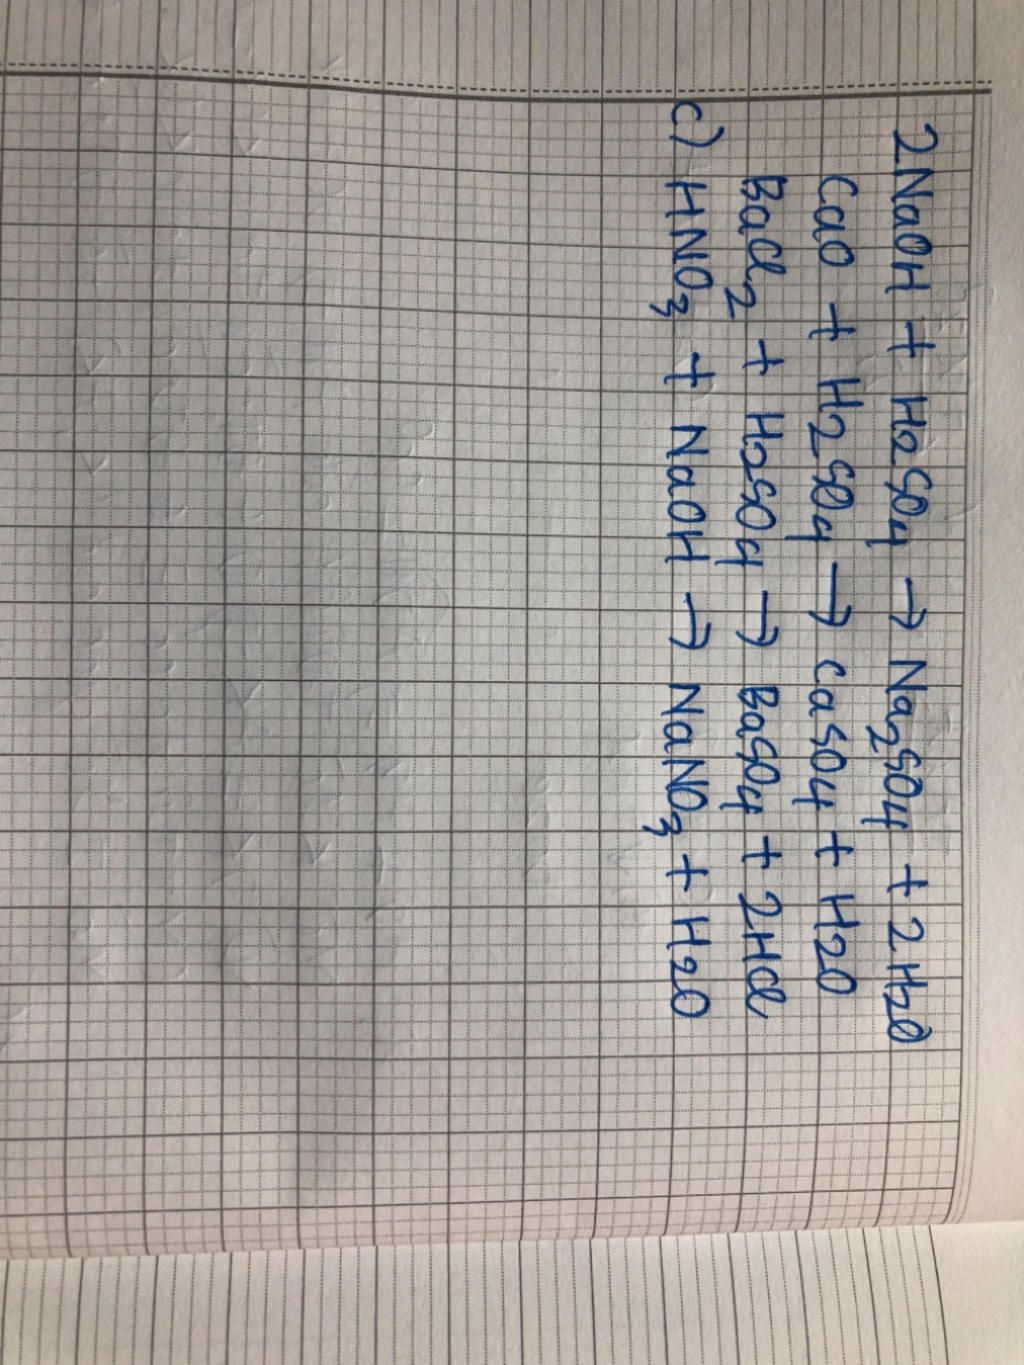 2NaOH + H2SO4 → Na2SO4 + 2H2O
CaO + H2SO4 → CaSO4 + H2O
BaCl2 + H2SO4 → BaSO4 + 2HCl
c) HNO3 + NaOH → NaNO3 + H2O